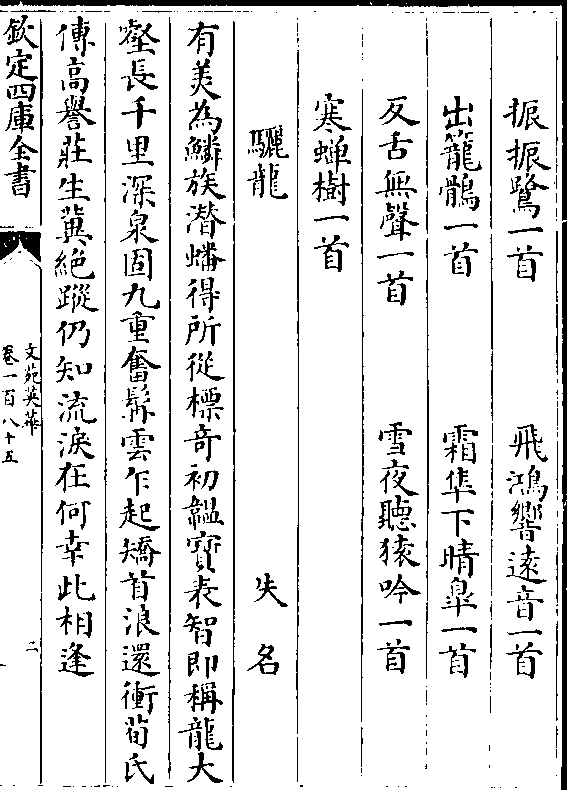 振振鷺一首 飛鴻響遠音一首
出籠鶻一首 霜隼下晴臯一首
反舌無聲一首 雪夜聽猿吟一首
寒蟬樹一首
驪龍 失名
有美為鱗族潛蟠得所從標奇初韞寶表智即稱龍大
壑長千里深泉固九重奮髯雲乍起矯首浪還衝荀氏
傳高譽莊生冀絕蹤仍知流淚在何幸此相逢
欽定四庫全書
文苑英華
卷一百八十五
二